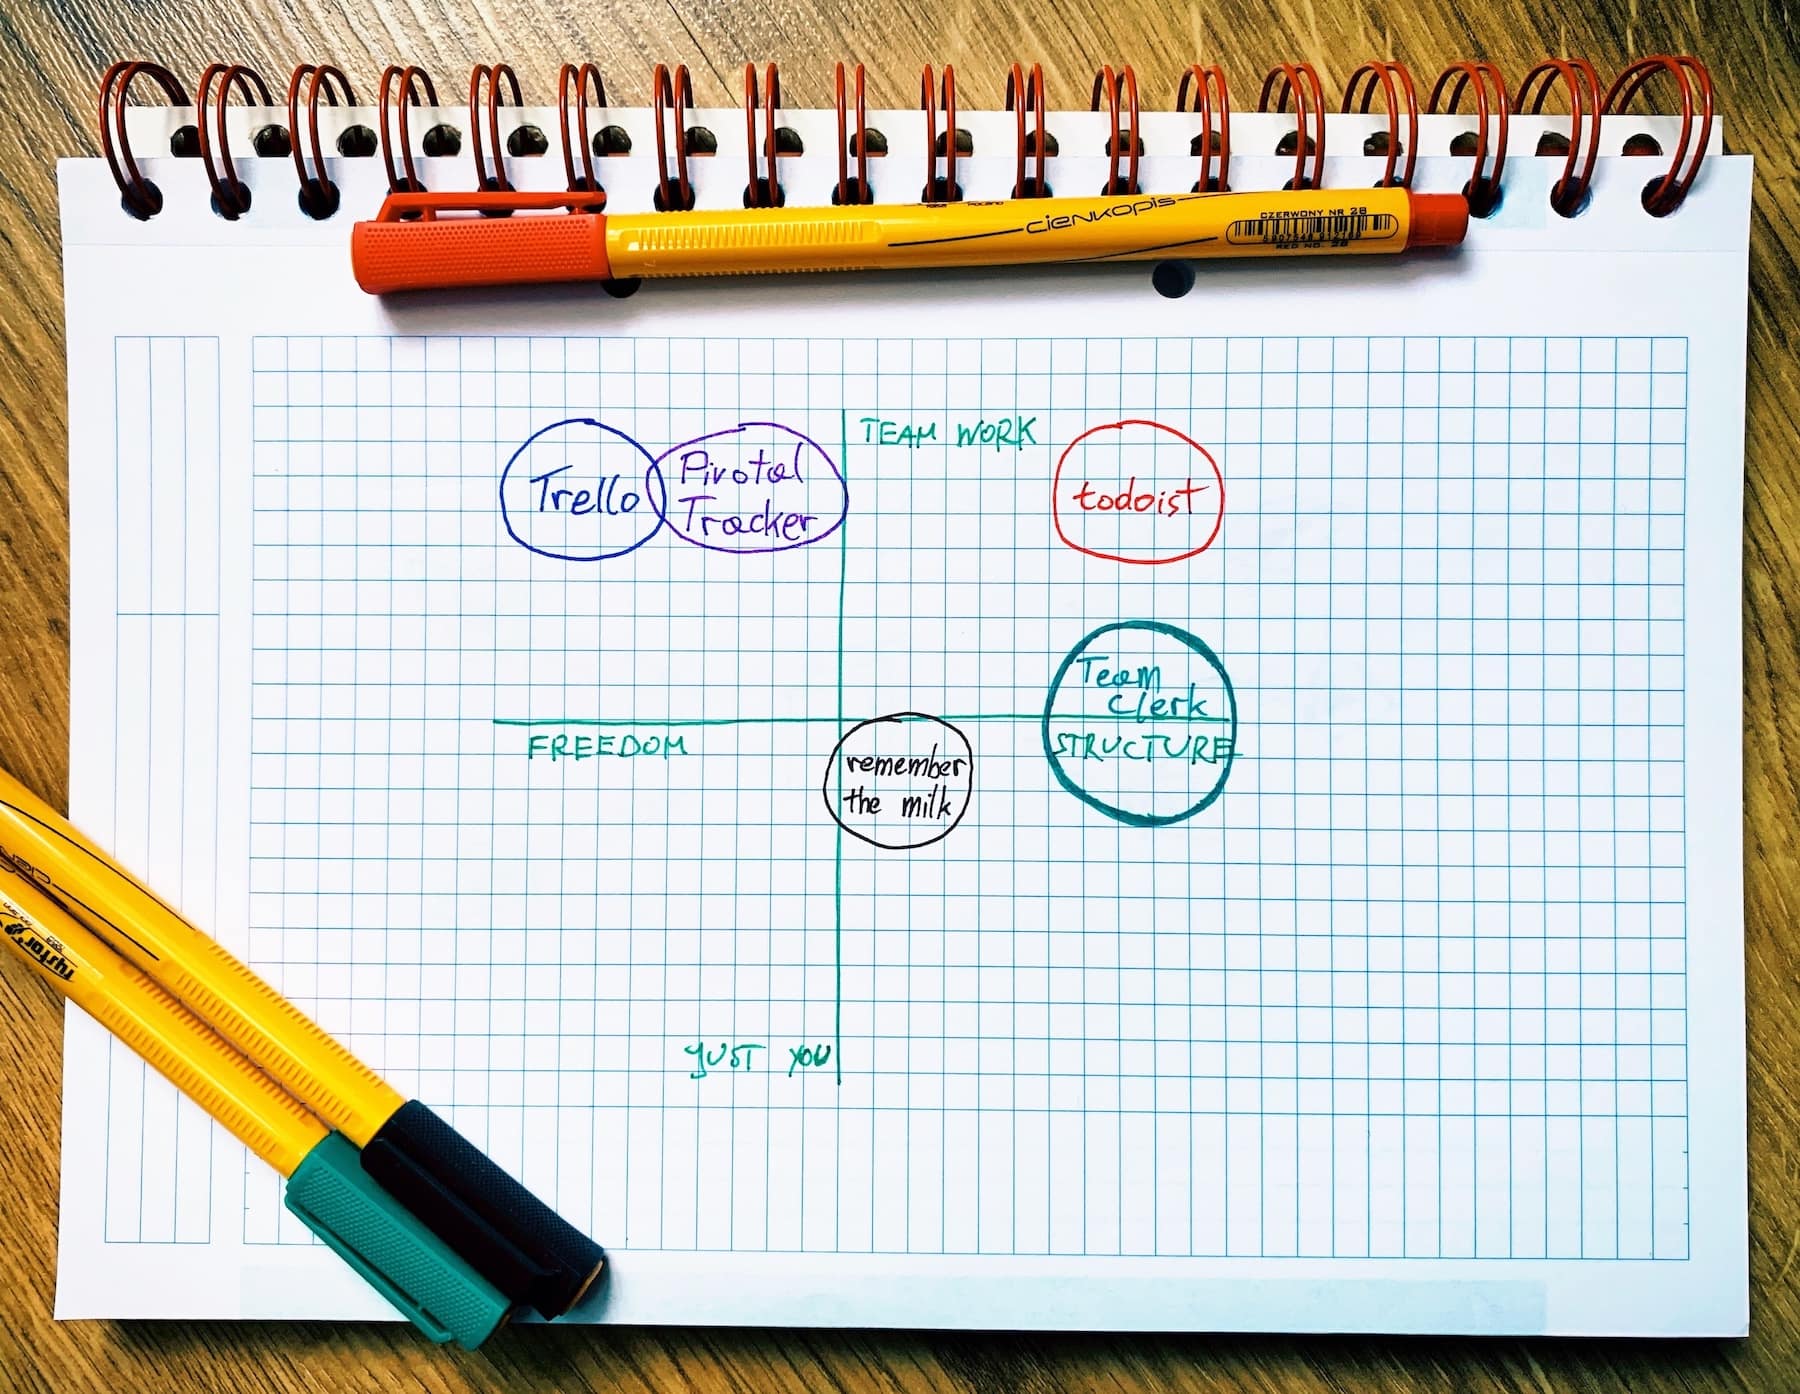 cienkopis
CZERWONY NR 28
5907548 912169
RED NO. 28
TEAM WORK
Trello
Pivotal
Tracker
todoist
Team
Clerk
FREEDOM
STRUCTURE
remember
the milk
JUST YOU
rystor